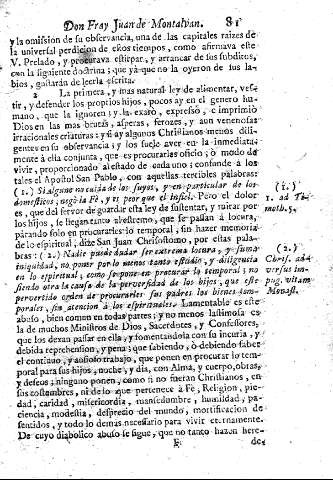 Don Fray Juan de Montalvan. 81
y la omission de su observancia, una de las capitales raizes de
la universal perdicion de estos tiempos, como afirmava este
V. Prelado, y procurava estirpar, y arrancar de sus subditos,
con la siguiente doctrina; que yà que no la oyeron de sus la-
bios, gustaràn de leerla escrita.
2 La primera, y mas natural ley de alimentar, ves-
tir, y defender los proprios hijos, pocos ay en el genero hu-
mano, que la ignoren; y la exaro, expressò, è imprimiò
Dios en las mas brutas, asperas, ferozes, y aun venenosas
irracionales criaturas; y si ay algunos Christianos menos dili-
gentes en su observancia; y los suele aver en la inmediata-
mente à ella conjunta, que es procurarles oficio, ò modo de
vivir, proporcionado al estado de cada uno; confunde à los
tales el Apostol San Pablo, con aquellas terribles palabras:
(1.) Si alguno no cuida de los suyos, y en particular de los
domesticos; negò la Fè, y es peor que el infiel. Pero el dolor
es, que del fervor de guardar esta ley de sustentar, y mirar por
los hijos, se llegan tanto al estremo, que se passan à locura,
parando solo en procurarles lo temporal, sin hazer memoria
de lo espiritual; dize San Chrisostomo, por estas pala-
bras: (2.) Nadie puede dudar ser extrema locura, y suma
iniquidad, no poner por lo menos tanto estudio, y diligencia
en lo espiritual, como se pone en procurar lo temporal; no
siendo otra la causa de la perversidad de los hijos, que este
pervertido orden de procurarles sus padres los bienes tem-
porales, sin atencion à los espirituales. Lamentable es este
abuso, bien comun en todas partes; y no menos lastimosa es
la de muchos Ministros de Dios, Sacerdotes, y Confessores,
que los dexan passar en ella, y fomentandola con su incuria, y
debida reprehension, y pena; que sabiendo, ò debiendo saber
el continuo, y ansioso trabajo, que ponen en procurar lo tem-
poral para sus hijos, noche, y dia, con Alma, y cuerpo, obras,
y deseos; ninguno ponen, como si no fueran Christianos, en
sus costumbres, ni de lo que pertenece à Fè, Religion, pie-
dad, caridad, misericordia, mansedumbre, humildad, pa-
ciencia, modestia, desprecio del mundo, mortificacion de
sentidos, y todo lo demas necessario para vivir eternamente.
De cuyo diabolico abuso se sigue, que no tanto hazen here-
F de-
(1.)
1. ad Ti-
moth. 5.
(2.)
Chris. ad-
versus im-
pug. vitam
Monast.